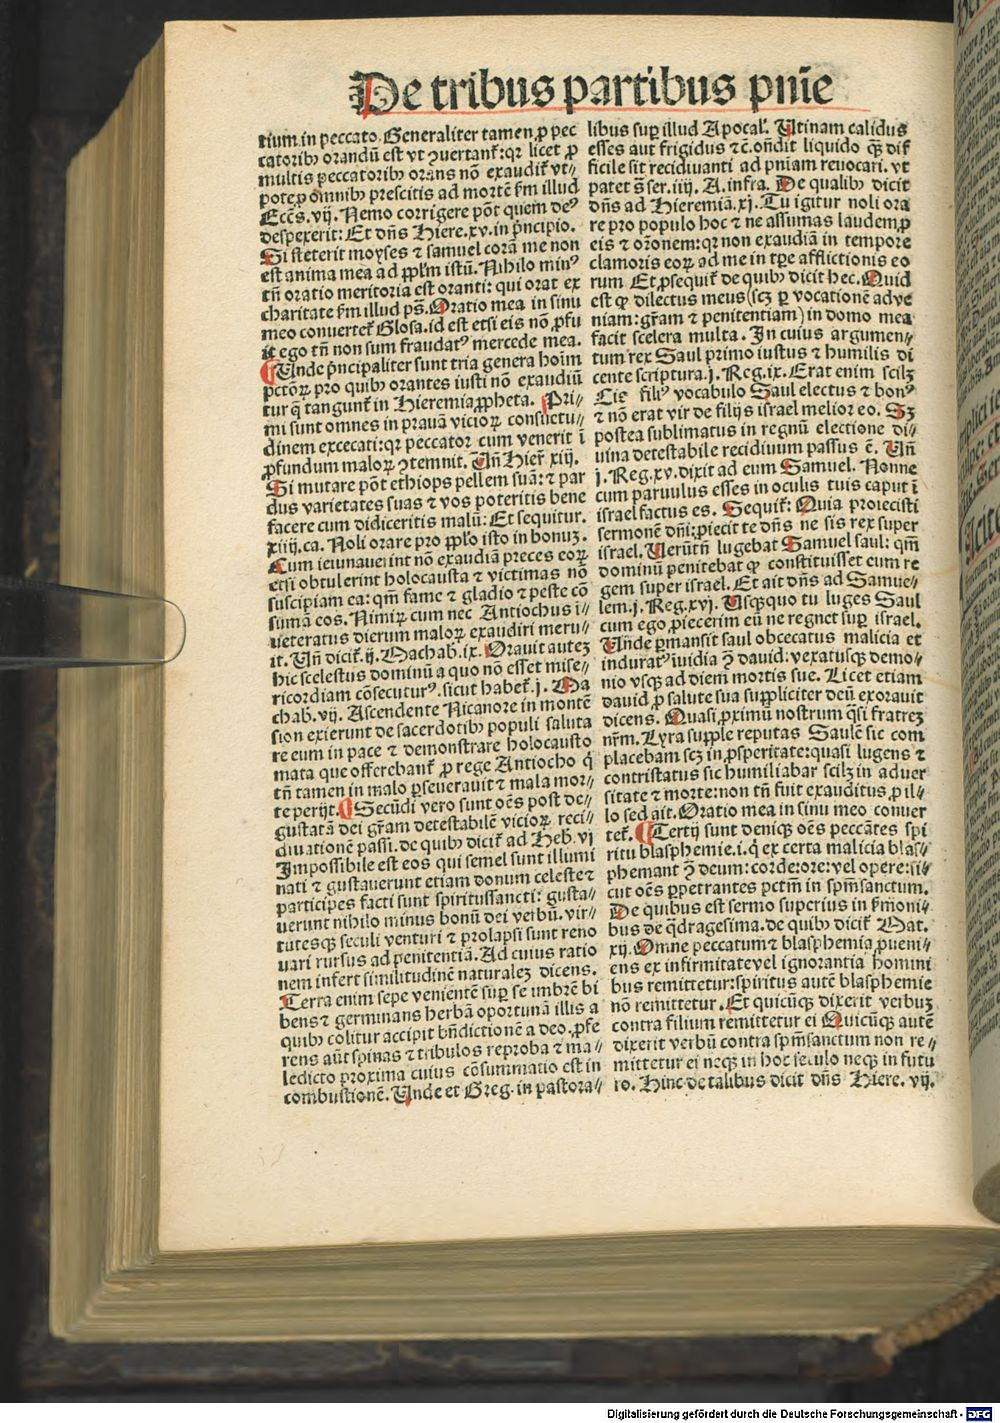 De tribus partibus pnīe
tium in peccato. Generaliter tamen ꝓ pec
catoribꝰ orandū est vt ꝯuertant᷑: qꝛ licet ꝓ
multis peccatoribꝰ orans nō exaudit᷑ vt⸗
pote ꝓ omnibꝰ prescitis ad mortē fm illud
Eccēs. vij. Nemo corrigere pōt quem deꝰ
despexerit: Et dn̄s Hiere. xv. in pͥncipio.
Si steterit moyses ⁊ samuel corā me non
est anima mea ad ppl̄m istū. Nihilo minꝰ
tn̄ oratio meritoria est oranti: qui orat ex
charitate fm illud ps̄. Oratio mea in sinu
meo conuertet᷑ Glosa. id est etsi eis nō ꝓfu
it ego tn̄ non sum fraudatꝰ mercede mea.
¶ Unde pͥncipaliter sunt tria genera hoīm
pctōꝝ pro quibꝰ orantes iusti nō exaudiū
tur q̄ tangunt᷑ in Hieremia ꝓpheta. Pri⸗
mi sunt omnes in prauā vicioꝝ consuetu⸗
dinem excecati: qꝛ peccator cum venerit ī
ꝓfundum maloꝝ ꝯtemnit. Un̄ Hier̄ xiij.
Si mutare pōt ethiops pellem suā: ⁊ par
dus varietates suas ⁊ vos poteritis bene
facere cum didiceritis malū: Et sequitur.
xiiij. ca. Noli orare pro pplo isto in bonuꝫ.
Cum ieiunauerint nō exaudiā preces eoꝝ
etsi obtulerint holocausta ⁊ victimas nō
suscipiam ea: qm̄ fame ⁊ gladio ⁊ peste cō
sumā eos. Nimiꝝ cum nec Antiochus i⸗
ueteratus dierum maloꝝ exaudiri meru⸗
it. Un̄ dicit᷑. ij. Machab. ix. Orauit auteꝫ
hic scelestus dominū a quo nō esset mise⸗
ricordiam cōsecuturꝰ. sicut habet᷑. j. Ma
chab. vij. Ascendente Nicanore in montē
sion exierunt de sacerdotibꝰ populi saluta
re eum in pace ⁊ demonstrare holocausto
mata que offerebant᷑ ꝓ rege Antiocho qͥ
tn̄ tamen in malo ꝑseuerauit ⁊ mala mor⸗
te perijt. ¶ Secūdi vero sunt oēs post de⸗
gustatā dei grām detestabilē vicioꝝ reci⸗
diuationē passi. de quibꝰ dicit᷑ ad Heb. vi
Impossibile est eos qui semel sunt illumi
nati ⁊ gustauerunt etiam donum celeste ⁊
participes facti sunt spiritussancti: gusta⸗
uerunt nihilo minus bonū dei verbū. vir⸗
tutesqꝫ seculi venturi ⁊ prolapsi sunt reno
uari rursus ad penitentiā. Ad cuius ratio
nem infert similitudinē naturaleꝫ dicens.
Terra enim sepe venientē suꝑ se imbrē bi
bens ⁊ germinans herbā oportunā illis a
quibꝰ colitur accipit bn̄dictionē a deo. ꝓfe
rens aūt spinas ⁊ tribulos reproba ⁊ ma⸗
ledicto proxima cuius cōsummatio est in
combustionē. Unde et Greg. in pastora⸗
libus suꝑ illud Apocal̕. Utinam calidus
esses aut frigidus ⁊ c̄. on̄dit liquido qꝫ dif
ficile sit recidiuanti ad pniam reuocari. vt
patet s̄ ser. iiij. A. infra. De qualibꝰ dicit
dn̄s ad Hieremiā. xj. Tu igitur noli ora
re pro populo hoc ⁊ ne assumas laudem ꝓ
eis ⁊ orōnem: qꝛ non exaudiā in tempore
clamoris eoꝝ ad me in tꝑe afflictionis eo
rum Et ꝓsequit᷑ de quibꝰ dicit hec. Quid
est ꝙ dilectus meus (scꝫ ꝑ vocationē adve
niam: grām ⁊ penitentiam) in domo mea
facit scelera multa. In cuius argumen⸗
tum rex Saul primo iustus ⁊ humilis di
cente scriptura. j. Reg. ix. Erat enim scilꝫ
Cis filiꝰ vocabulo Saul electus ⁊ bonꝰ
⁊ nō erat vir de filijs israel melior eo. Sꝫ
postea sublimatus in regnū electione di⸗
uina detestabile recidiuum passus ē. Un̄
j. Reg. xv. dixit ad eum Samuel. Nonne
cum paruulus esses in oculis tuis caput ī
israel factus es. Sequit᷑: Quia proiecisti
sermonē dn̄i: ꝓiecit te dn̄s ne sis rex super
israel. Uerūtn̄ lugebat Samuel saul: qm̄
dominū penitebat ꝙ constituisset eum re
gem super israel. Et ait dn̄s ad Samue⸗
lem. j. Reg. xvj. Usqꝫquo tu luges Saul
cum ego ꝓiecerim eū ne regnet suꝑ israel.
Unde ꝑmansit saul obcecatus malicia et
induratꝰ īuidia ꝯ̄ dauid: vexatusqꝫ demo⸗
nio vsqꝫ ad diem mortis sue. Licet etiam
dauid ꝓ salute sua suppliciter deū exorauit
dicens. Quasi ꝓximū nostrum q̄si fratreꝫ
nr̄m. Lyra supple reputas Saulē sic com
placebam scꝫ in ꝓsperitate: quasi lugens ⁊
contristatus sic humiliabar scilꝫ in aduer
sitate ⁊ morte: non tn̄ fuit exauditus ꝓ il⸗
lo sed ait. Oratio mea in sinu meo conuer
tet᷑. ¶ Tertij sunt deniqꝫ oēs peccātes spi
ritu blasphemie. i. qͥ ex certa malicia blas⸗
phemant ꝯ̄ deum: corde: ore: vel opere: si⸗
cut oēs ꝑpetrantes pctm̄ in spm̄sanctum.
De quibus est sermo superius in f᷑moni⸗
bus de q̄dragesima. de quibꝰ dicit᷑ Mat.
xij. Omne peccatum ⁊ blasphemia ꝓueni⸗
ens ex infirmitate vel ignorantia homini
bus remittetur: spiritus autē blasphemie
nō remittetur. Et quicūqꝫ dixerit verbuꝫ
contra filium remittetur ei Quicūqꝫ autē
dixerit verbū contra spm̄sanctum non re⸗
mittetur ei neqꝫ in hoc seculo neqꝫ in futu
ro. Hinc de talibus dicit dn̄s Hiere. vij.
Digitalisierung gefördert durch die Deutsche Forschungsgemeinschaft - DFG